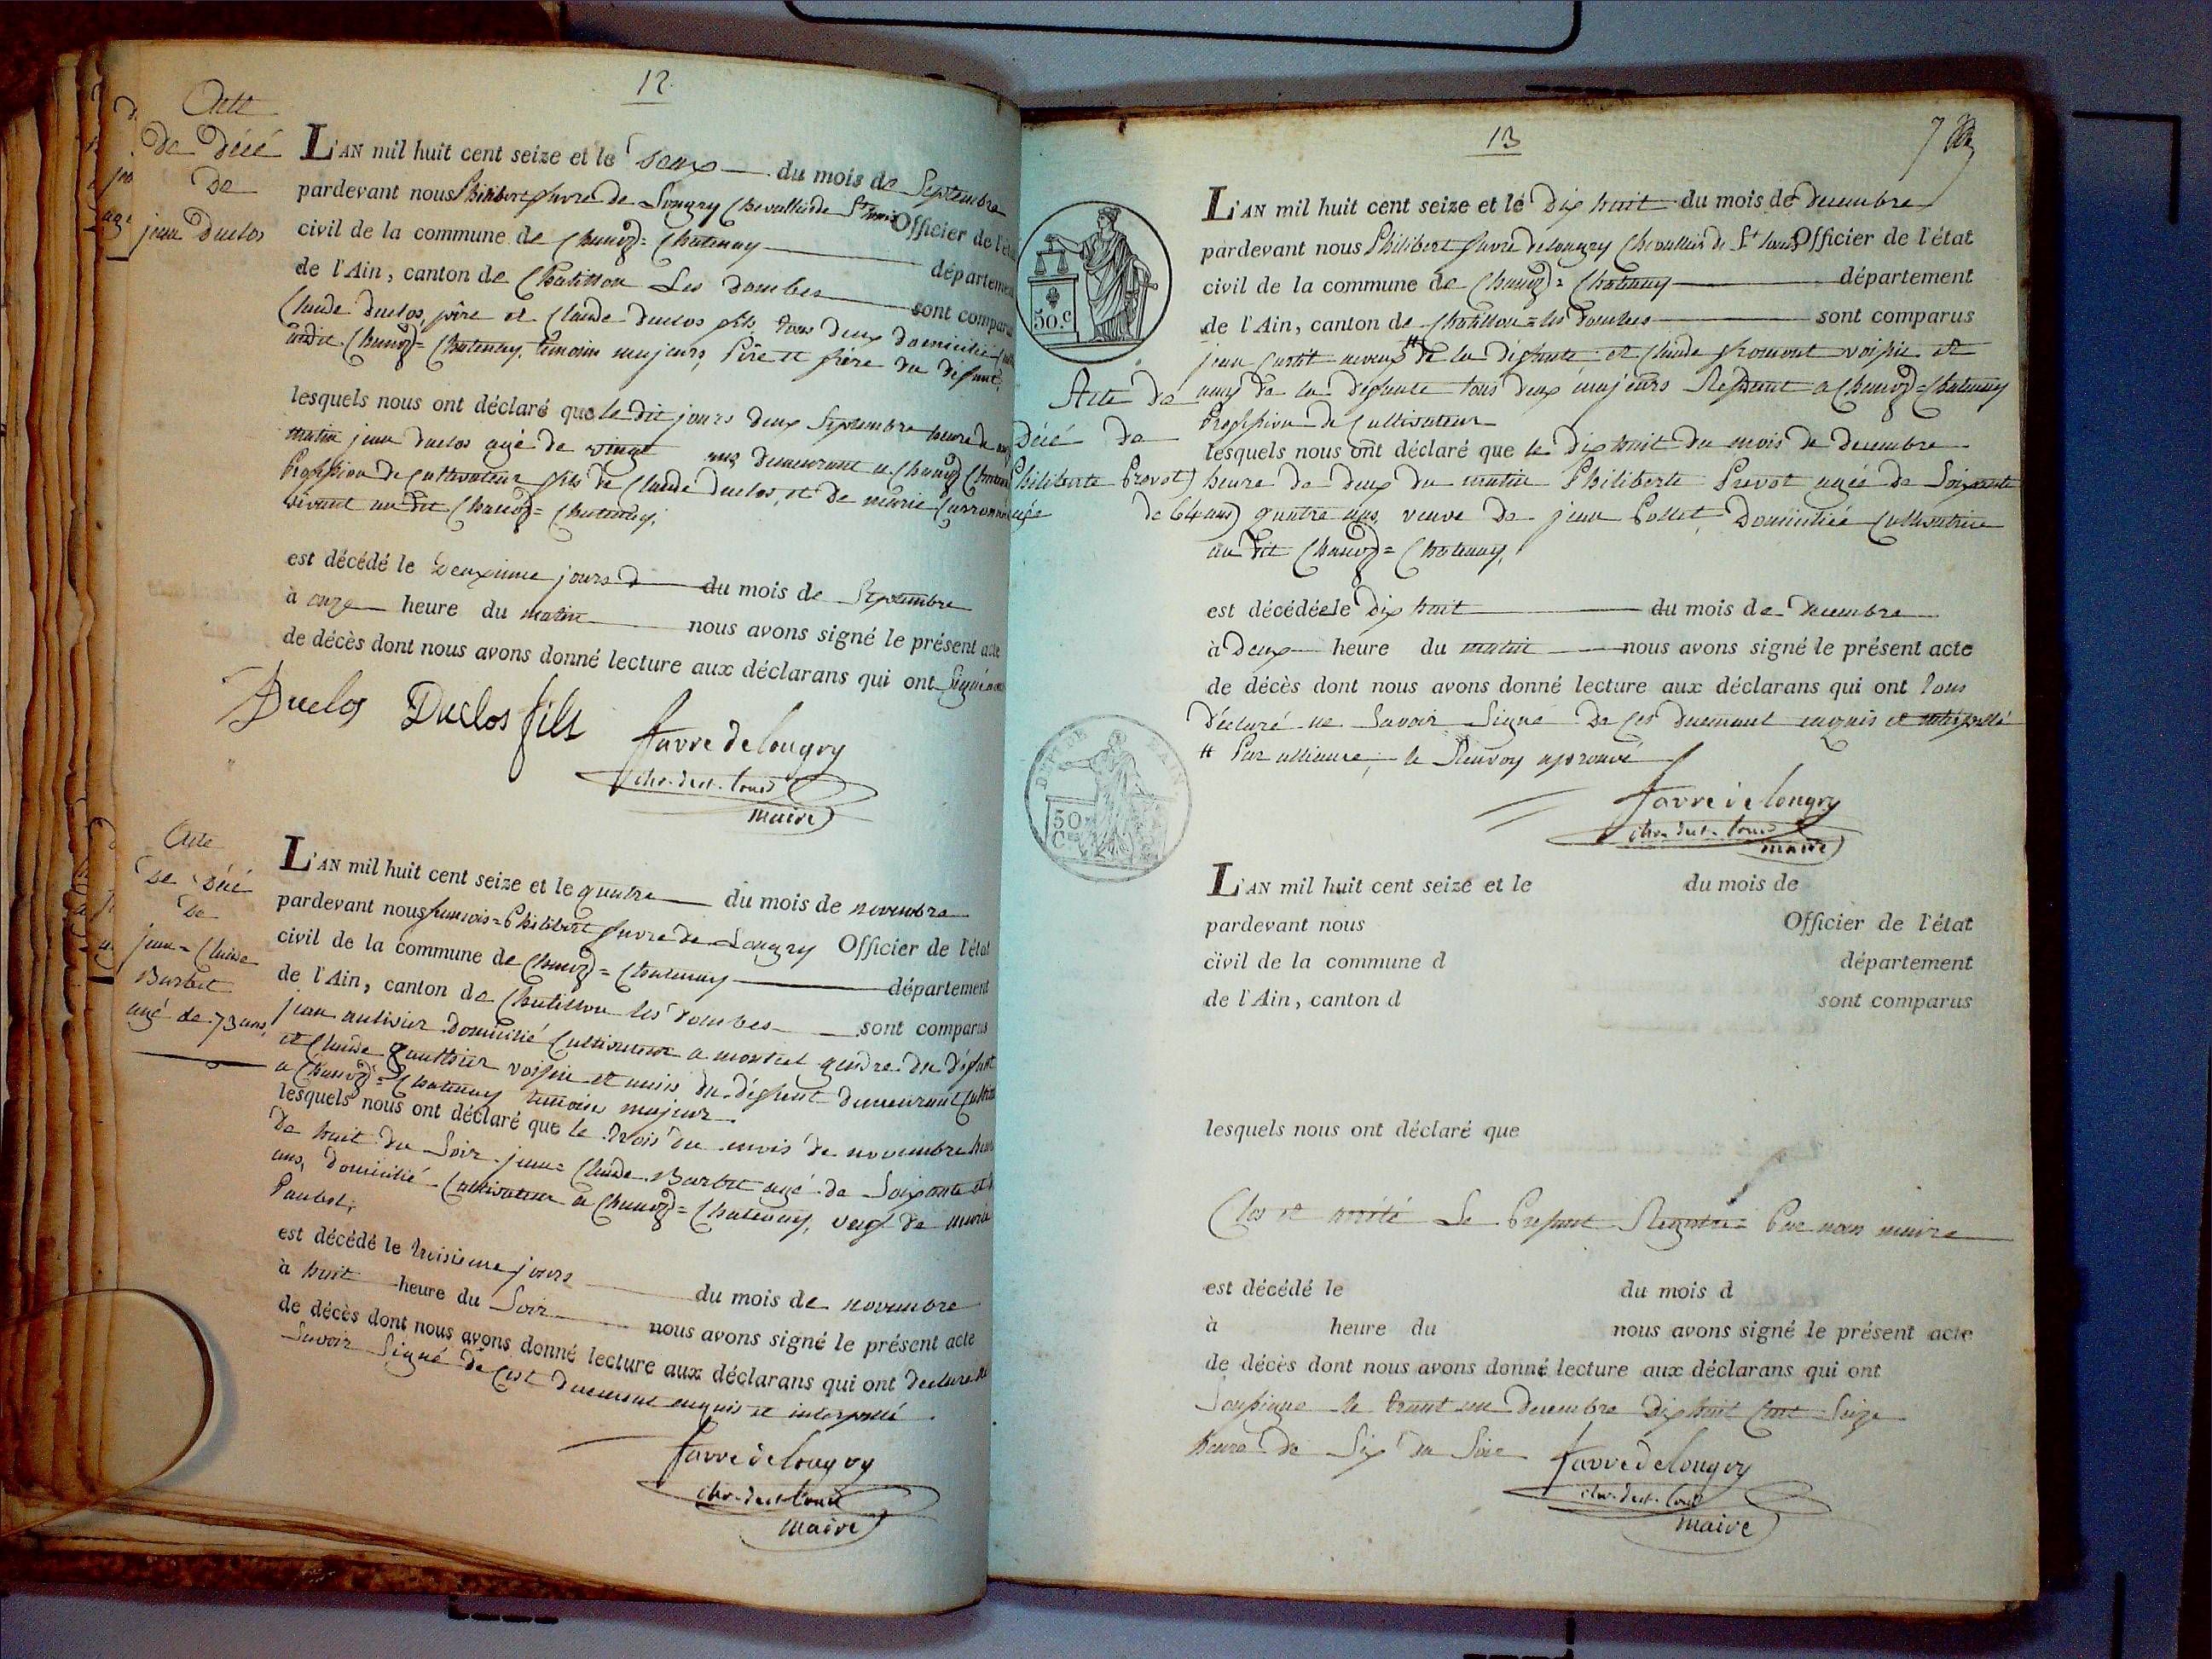 12
Acte
de décé
de
jean Duclos
L'AN mil huit cent seize et le deux du mois de Septembre
pardevant nous Philibert favre de Longry Chevallier de St Louis Officier de l'état
civil de la commune de Chanoz = Chatenay département
de l'Ain, canton de Chatillon Les dombes sont comparus
Claude duclos, père et Claude duclos fils tous deux domicilié
audit Chanoz = Chatenay, temoins majeurs, Père et frère du defunt,
lesquels nous ont déclaré que le dit jours deux Septembre heure de
matin jean duclos agé de vingt ans demeurant a Chanoz Chatenay
Profession de Cultivateur fils de Claude duclos, et de marie
vivant au dit Chanoz = Chatenay,
est décédé le deuxieme jours d du mois de Septembre
à onze heure du matin nous avons signé le présent acte
de décès dont nous avons donné lecture aux déclarans qui ont Signé
Duclos Duclos fils
favre de longry
chr. de st. louis
maire
Acte
de décé
de
jean = Claude
Barbet
agé de 73 ans,
L'AN mil huit cent seize et le quatre du mois de novembre
pardevant nous francois = Philibert favre de Longry Officier de l'état
civil de la commune de Chanoz = Chatenay département
de l'Ain, canton de Chatillon les dombes sont comparus
jean domicilié Cultivateur a montcel gendre du défunt
et Claude gauthier voisin et amis du défunt demeurant
a Chanoz = Chatenay temoins majeur.
lesquels nous ont déclaré que le trois du mois de novembre heure
de huit du Soir jean = Claude Barbet agé de Soixante et
ans, domicilié Cultivateur a Chanoz = Chatenay, veuf de marie
est décédé le troisieme jours du mois de novembre
à huit heure du Soir nous avons signé le présent acte
de décès dont nous avons donné lecture aux déclarans qui ont declaré ne
Savoir Signé de Cest duement enquis et interpellé
favre de longry
chr. de st. louis
maire
13
7
50.c
Acte de
Décé de
Philiberte Prevot
agée
de 64 ans
L'AN mil huit cent seize et le dix huit du mois de decembre
pardevant nous Philibert favre de longry Chevallier de St Louis Officier de l'état
civil de la commune de Chanoz = Chatenay département
de l'Ain, canton de Chatillon = les dombes sont comparus
jean neveux # de la défunte et Claude fromont voisin et
amy de la défunte tous deux majeurs Residant a Chanoz = Chatenay
Profession de Cultivateur
lesquels nous ont déclaré que le dix huit du mois de decembre
heure de deux du matin Philiberte Prevot agée de Soixante
quatre ans, veuve de jean Pollet, Domiciliée Cultivatrice
au dit Chanoz = Chatenay,
est décédée le dix huit du mois de decembre
à deux heure du matin nous avons signé le présent acte
de décès dont nous avons donné lecture aux déclarans qui ont tous
déclaré ne Savoir Signé De Ces duement enquis et interpellé
# Par alliance, le Renvoy aprouvé
DEPT. DE L'AIN
50
Ces
favre de longry
chr. de st. louis
maire
L'AN mil huit cent seize et le du mois de
pardevant nous Officier de l'état
civil de la commune d département
de l'Ain, canton d sont comparus
lesquels nous ont déclaré que
Clos et arrété Le Present Registre Par nous maire
est décédé le du mois d
à heure du nous avons signé le présent acte
de décès dont nous avons donné lecture aux déclarans qui ont
Soussigné le trente un decembre dix huit Cent Seize
heure de Six du Soir
favre de longry
chr. de st. louis
maire